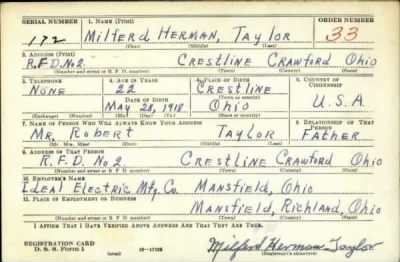 SERIAL NUMBER 1. NAME (Print) ORDER NUMBER
172 MILFERD HERMAN, TAYLOR 33
(First) (Middle) (Last)
2. ADDRESS (Print)
R.F.D. No 2. CRESTLINE CRAWFORD OHIO
(Number and street or R. F. D. number) (Town) (County) (State)
3. TELEPHONE 4. AGE IN YEARS 5. PLACE OF BIRTH 6. COUNTRY OF CITIZENSHIP
NONE 22 CRESTLINE
DATE OF BIRTH (Town or county)
MAY 28, 1918 OHIO U.S.A.
(Exchange) (Number) (Mo.) (Day) (Yr.) (State or country)
7. NAME OF PERSON WHO WILL ALWAYS KNOW YOUR ADDRESS 8. RELATIONSHIP OF THAT PERSON
MR. ROBERT TAYLOR FATHER
(Mr., Mrs., Miss) (First) (Middle) (Last)
9. ADDRESS OF THAT PERSON
R.F.D. No 2 CRESTLINE CRAWFORD OHIO
(Number and street or R. F. D. number) (Town) (County) (State)
10. EMPLOYER'S NAME
IDEAL ELECTRIC MFG. CO. MANSFIELD, OHIO
11. PLACE OF EMPLOYMENT OR BUSINESS
MANSFIELD, RICHLAND, OHIO
(Number and street or R. F. D. number) (Town) (County) (State)
I AFFIRM THAT I HAVE VERIFIED ABOVE ANSWERS AND THAT THEY ARE TRUE.
REGISTRATION CARD
D. S. S. Form 1 (over) Milferd Herman Taylor
(Registrant's signature)